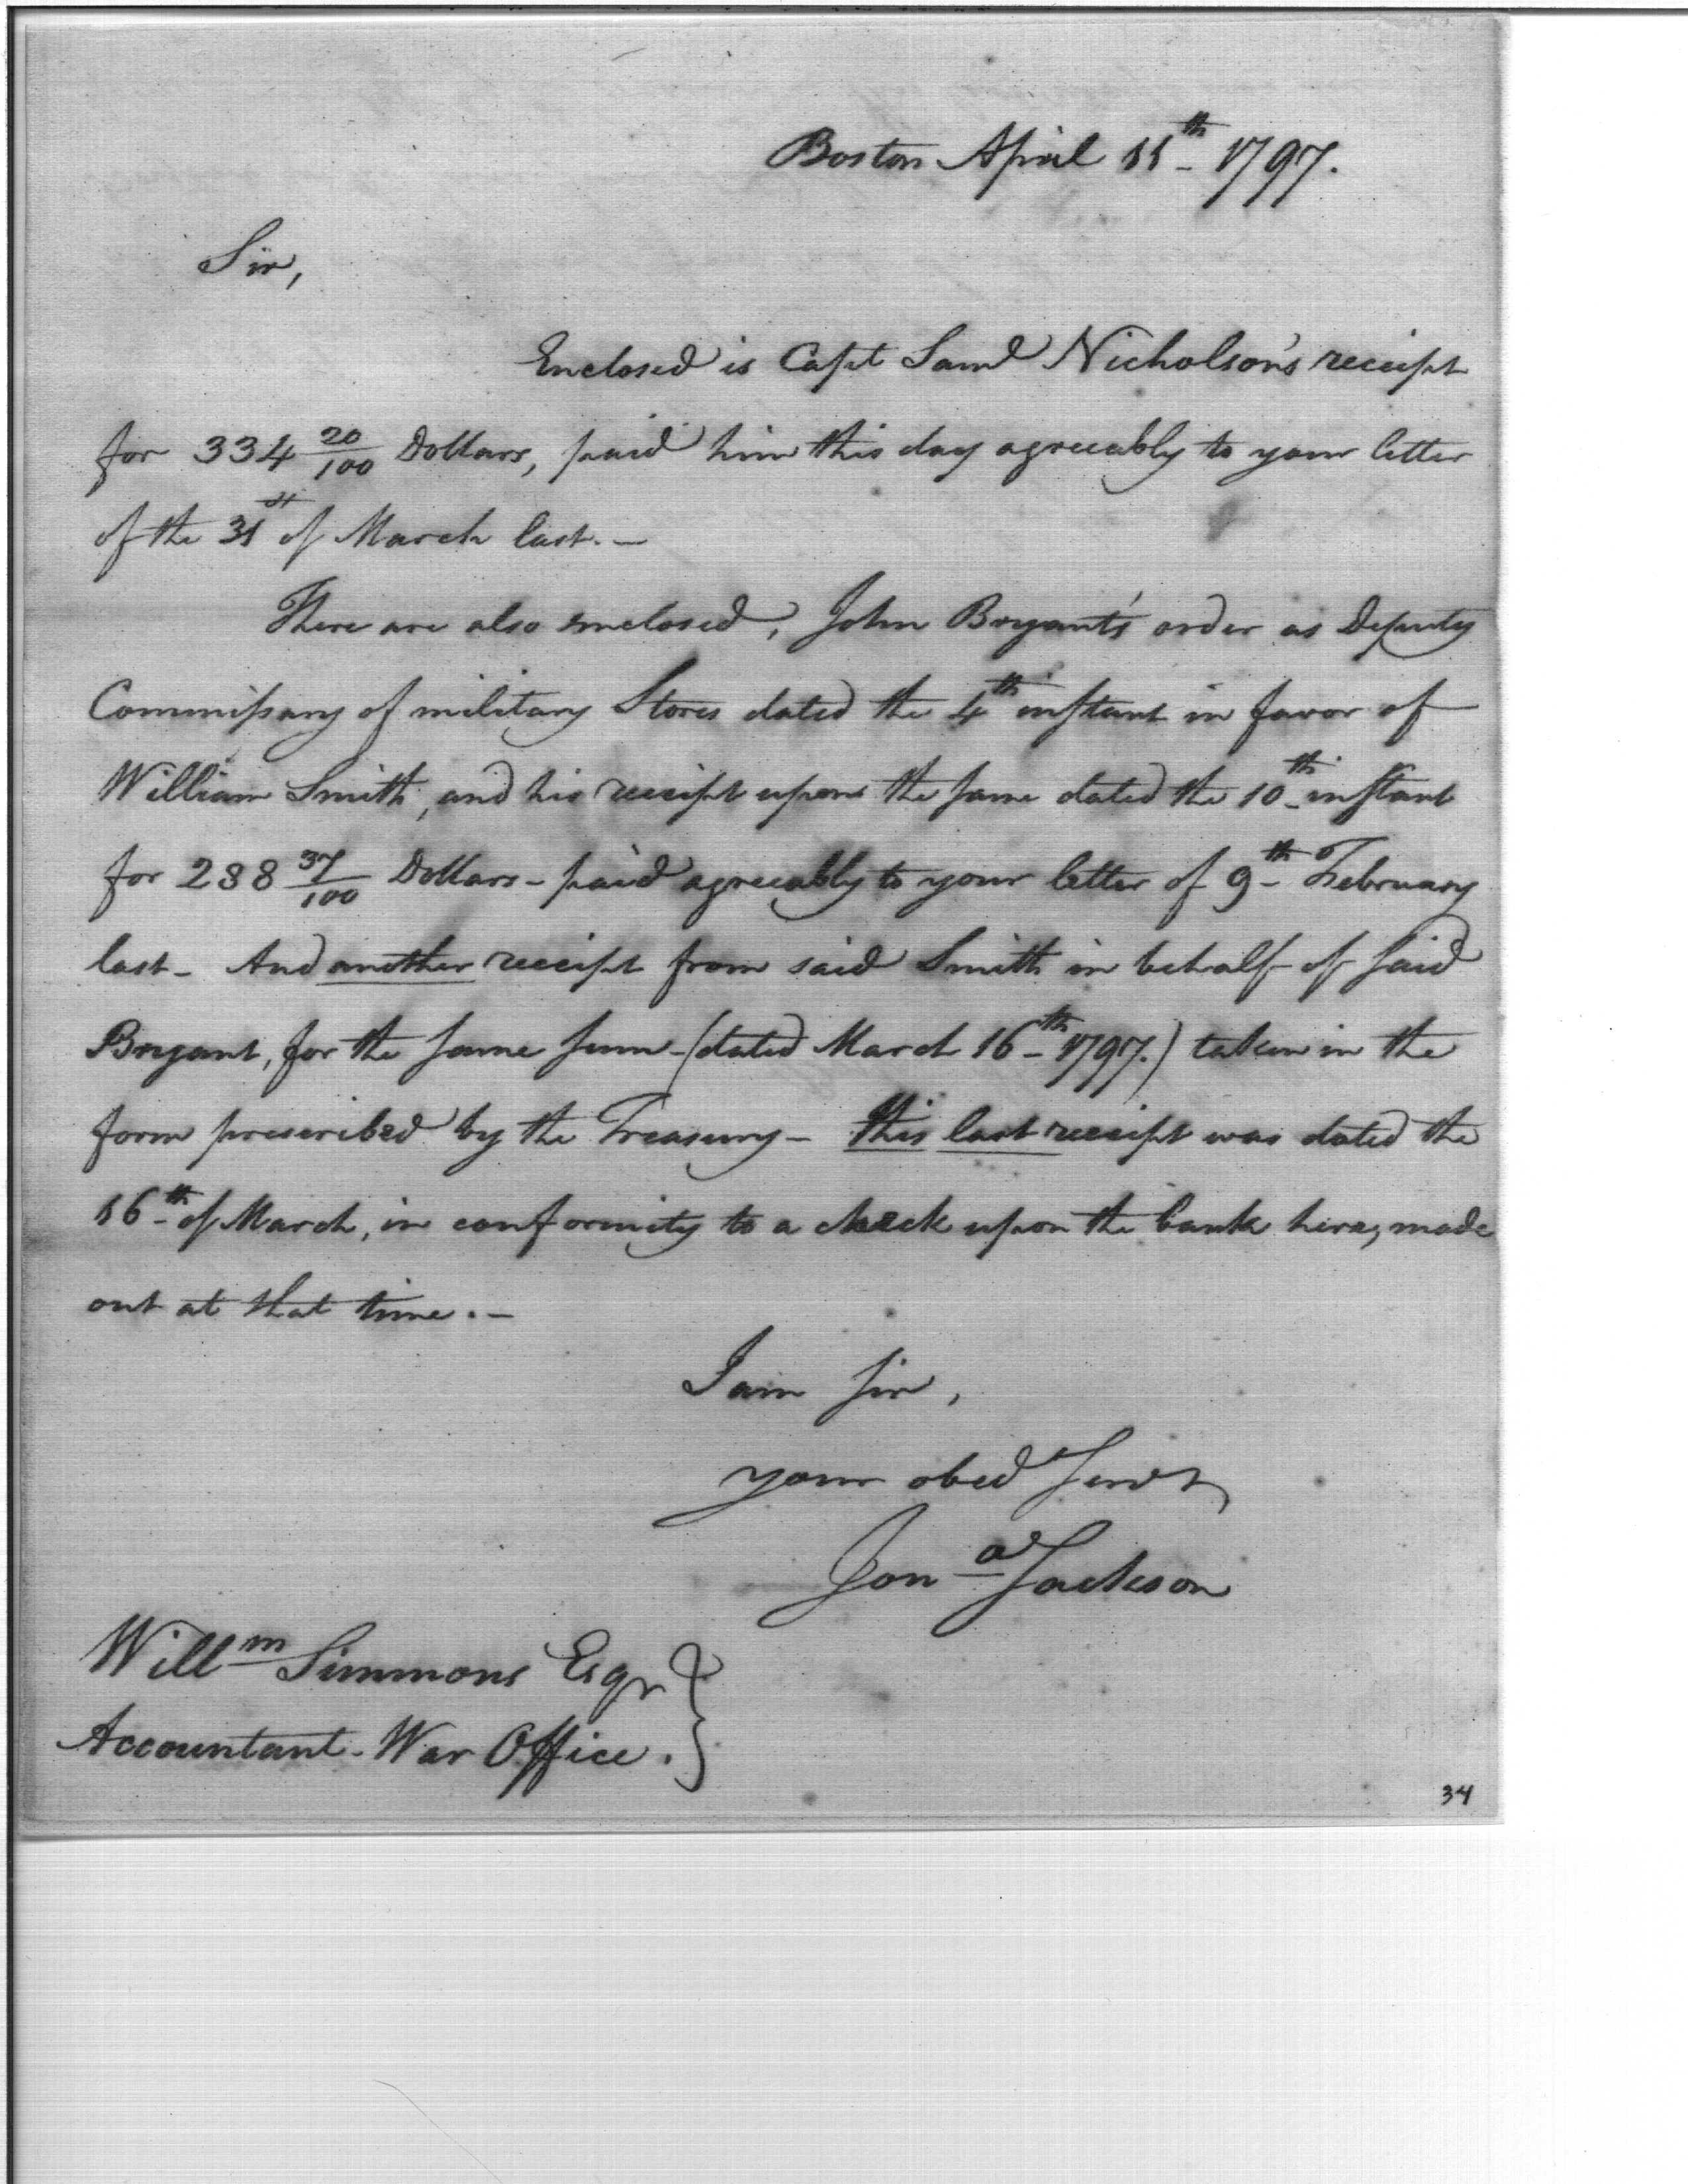 Boston April 11th 1797.
Sir,
Enclosed is Capt Saml Nicholson's receipt
for 334 20/100 Dollars, paid him this day agreeably to your letter
of the 31st of March last.—
There are also enclosed, John Bryant's order as Deputy
Commissary of military Stores dated the 4th instant in favor of
William Smith, and his receipt upon the same dated the 10th instant
for 238 37/100 Dollars - paid agreeably to your letter of 9th February
last - And another receipt from said Smith in behalf of said
Bryant, for the same sum - (dated March 16th 1797.) taken in the
form prescribed by the Treasury - this last receipt was dated the
16th of March, in conformity to a check upon the bank here, made
out at that time.—
I am sir,
your obed Servt
Jona Jackson
Willm Simmons Esqr }
Accountant - War Office. }
34